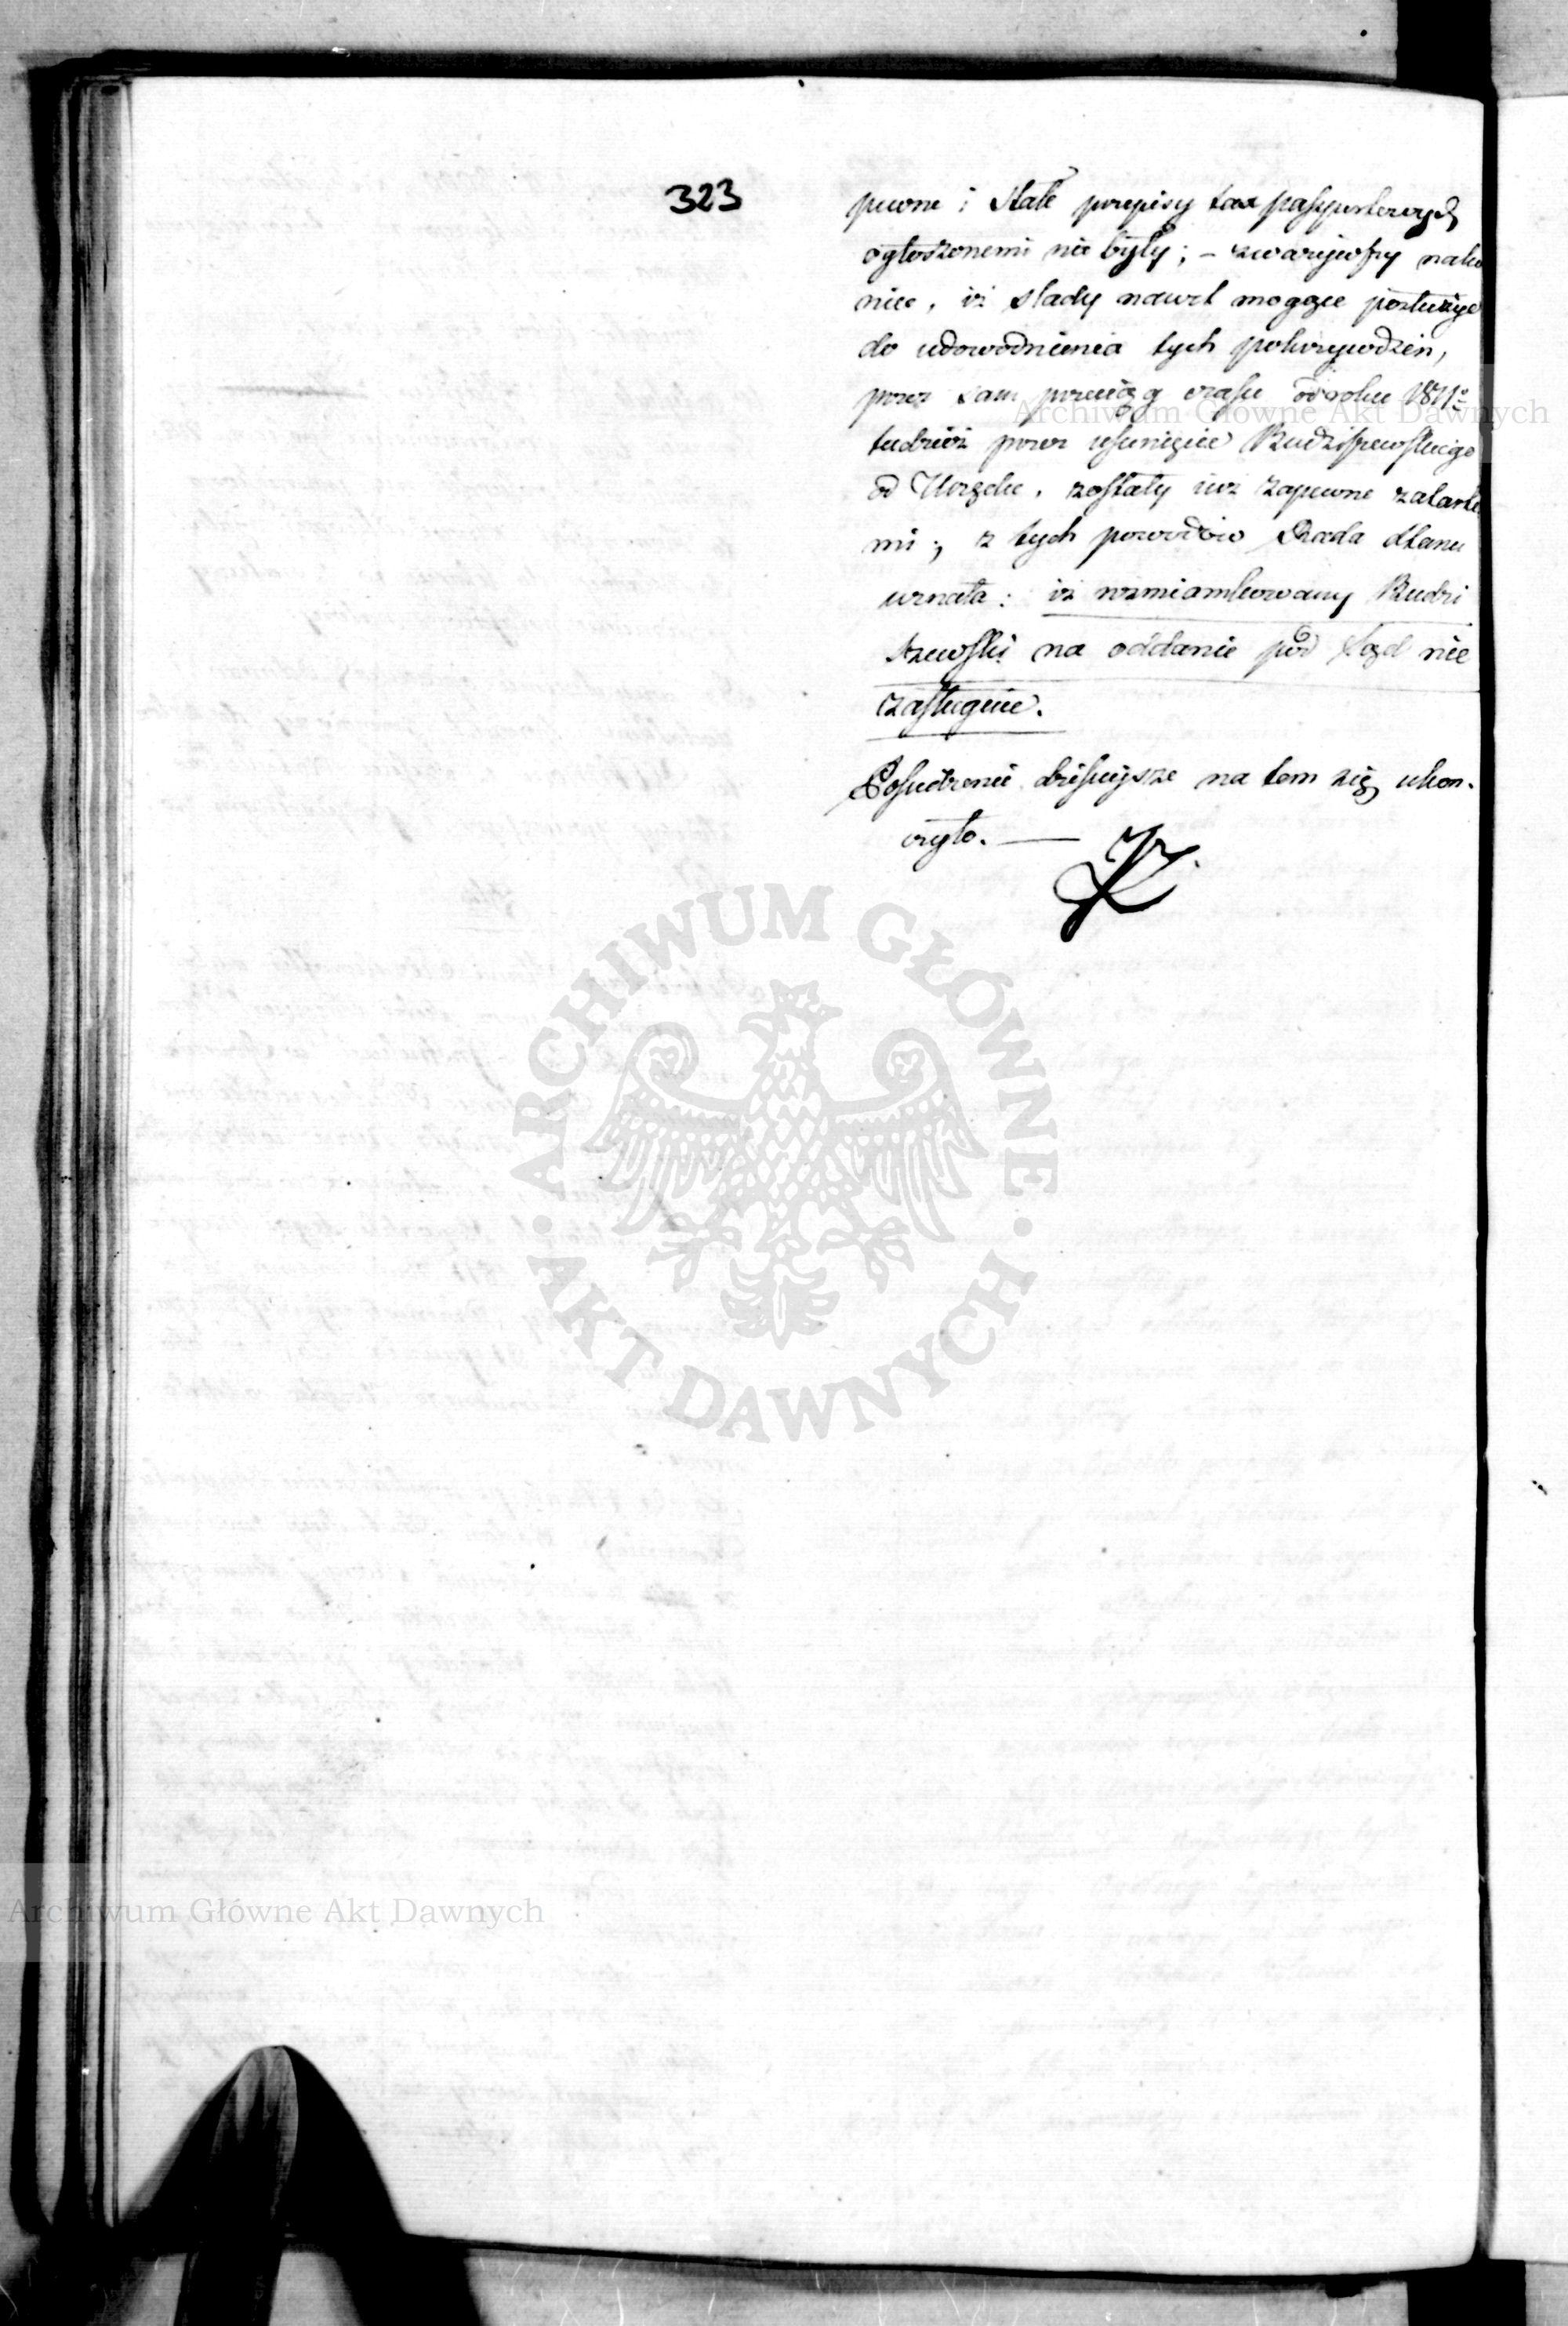 323
pewne i stałe przepisy tax paszportowych
ogłoszonemi nie były; – zważywszy nako
niec, iż ślady nawet mogące posłużyć
do udowodnienia tych pokrzywdzeń,
przez sam przeciąg czasu od roku 1811º
tudzież przez usunięcie Rudziszewskiego
od Urzędu, zostały już zapewne zatarte
mi; z tych powodów Rada Stanu
uznała: iż wzmiankowany Rudzi
szewski na oddanie pod Sąd nie
zasługuie.
Posiedzenie dzisieysze na tem się ukoń.
czyło. —
ARCHIWUM GŁÓWNE AKT DAWNYCH
Archiwum Główne Akt Dawnych
Archiwum Główne Akt Dawnych